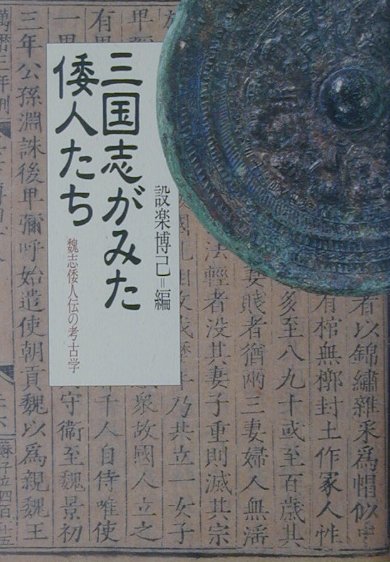 三国志がみた
倭人たち
魏志倭人伝の考古学
設楽博己=編
者以錦繡雜采爲帽似
有棺無槨封土作冢人性
多至八九十或至百歲其
妻賤者猶兩三妻婦人無淫
法輕者没其妻子重則滅其宗
乃共立一女子
衆故國人立之
千人自侍唯使
守衛至魏景初
三年公孫淵誅後卑彌呼始遣使朝貢魏以爲親魏王
萬曆三年刊